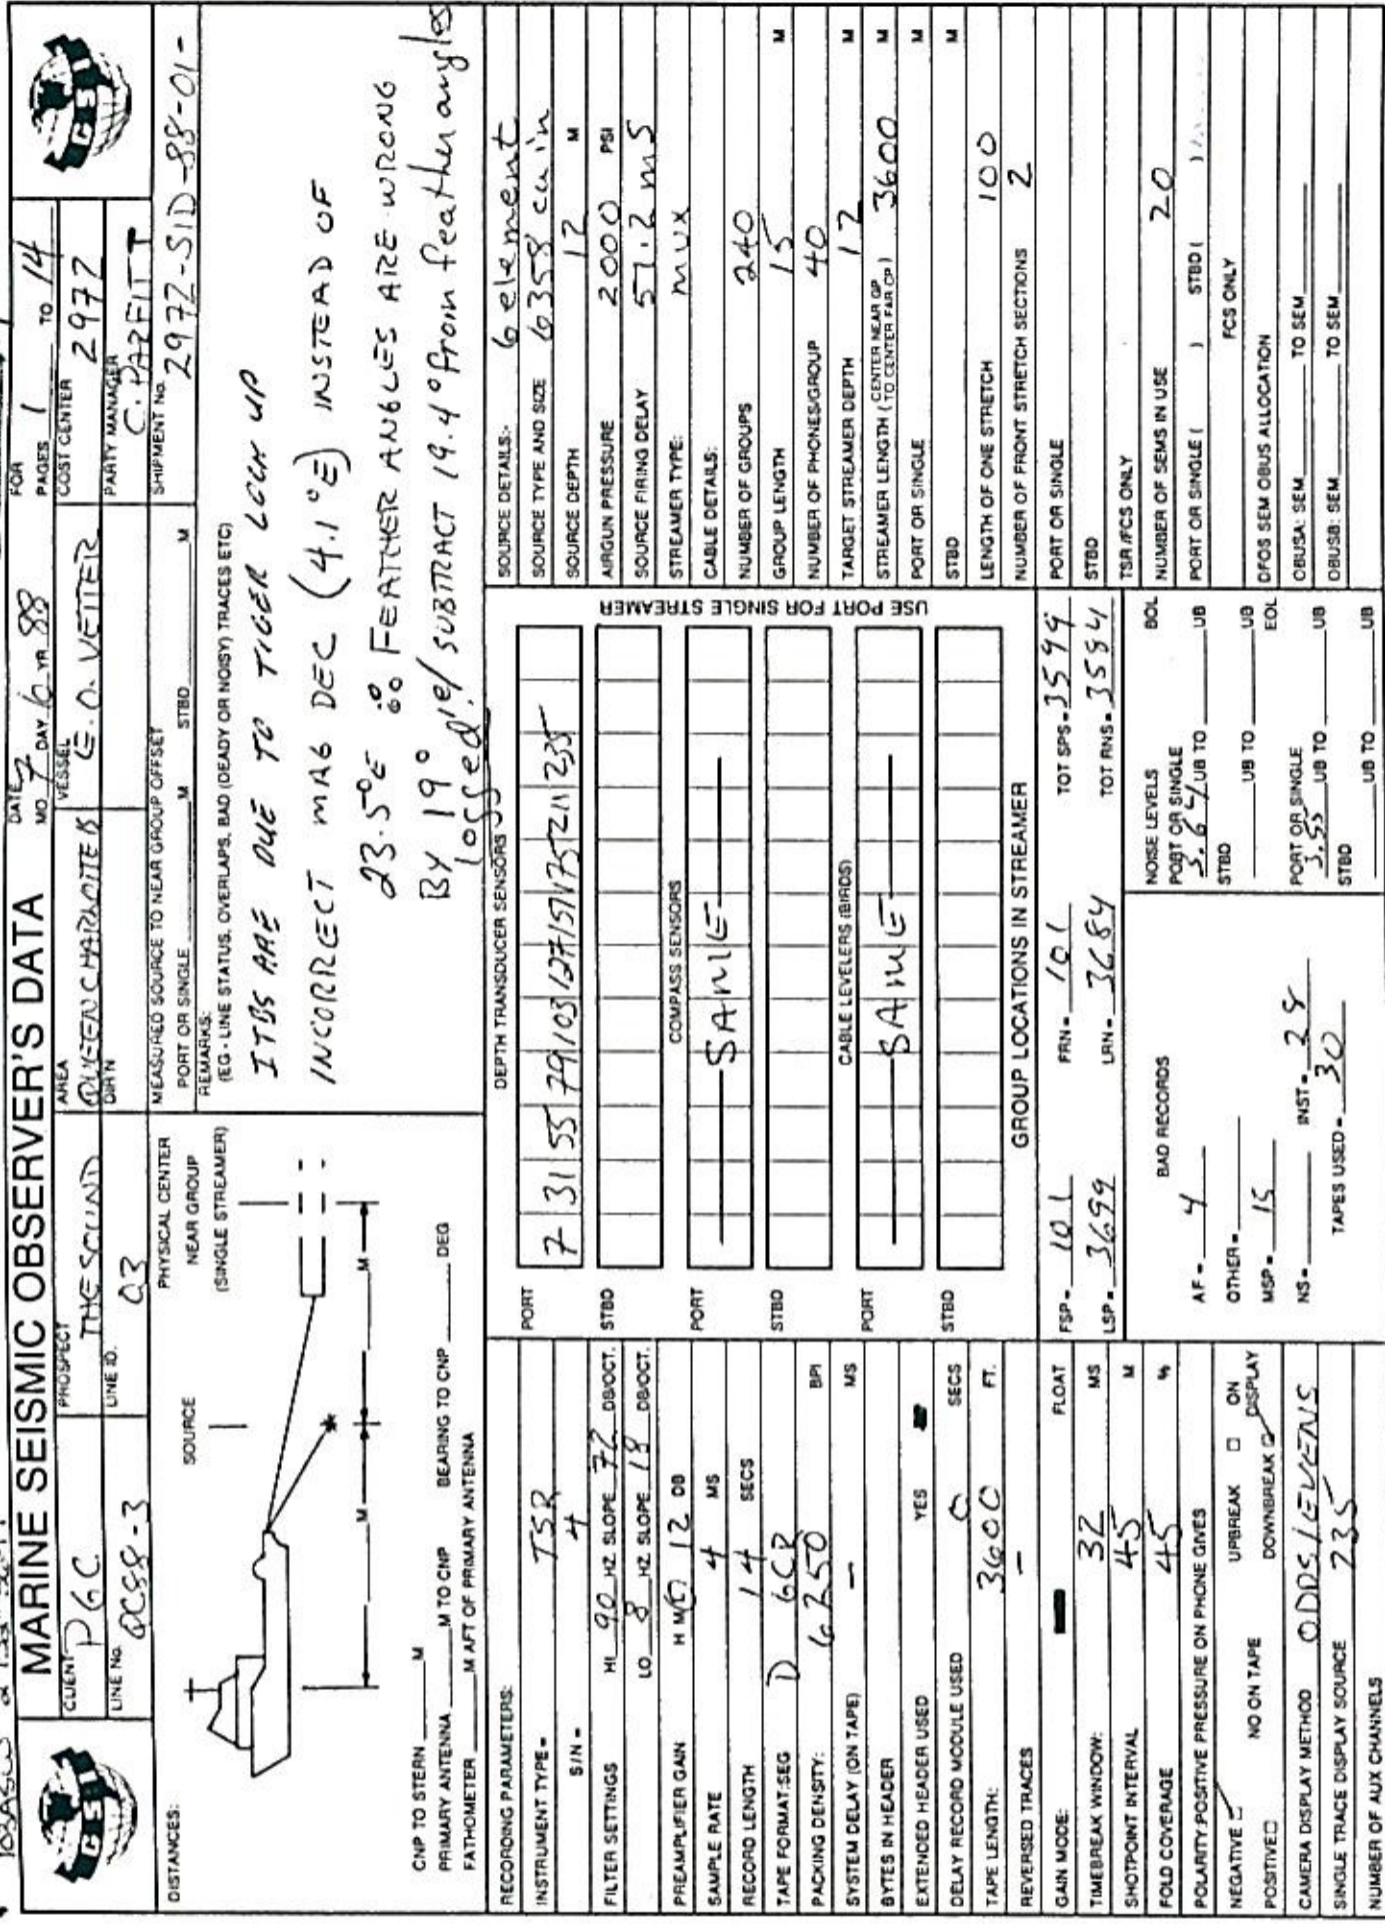 MARINE SEISMIC OBSERVER'S DATA
GSI
DATE
MO 7 DAY 6 YR 88
FOR
PAGES 1 TO 14
GSI
CLIENT PGC
PROSPECT THE SOUND
AREA QUEEN CHARLOTTE IS
VESSEL E.O. VETTER
COST CENTER 2972
LINE No. QC88-3
LINE ID. Q3
DIR'N
PARTY MANAGER C. PARFITT
DISTANCES:
SOURCE
PHYSICAL CENTER
NEAR GROUP
(SINGLE STREAMER)
M
M
CNP TO STERN M
PRIMARY ANTENNA M TO CNP BEARING TO CNP DEG
FATHOMETER M AFT OF PRIMARY ANTENNA
MEASURED SOURCE TO NEAR GROUP OFFSET
PORT OR SINGLE M STBD M
SHIPMENT No. 2972-SID-88-01-
REMARKS:
(EG - LINE STATUS, OVERLAPS, BAD (DEADY OR NOISY) TRACES ETC)
ITBS ARE DUE TO TIGER LOCK UP
INCORRECT MAG DEC (4.1°E) INSTEAD OF
23.5°E ∴ FEATHER ANGLES ARE WRONG
By 19° ie/ SUBTRACT 19.4° from feather angles
logged!
RECORDING PARAMETERS:
INSTRUMENT TYPE = TSR
S/N = 4
FILTER SETTINGS HI 90 HZ SLOPE 72 DB/OCT.
LO 8 HZ SLOPE 18 DB/OCT.
PREAMPLIFIER GAIN H M 12 DB
SAMPLE RATE 4 MS
RECORD LENGTH 14 SECS
TAPE FORMAT:SEG D GCR
PACKING DENSITY: 6250 BPI
SYSTEM DELAY (ON TAPE) — MS
BYTES IN HEADER
EXTENDED HEADER USED YES
DELAY RECORD MODULE USED 0 SECS
TAPE LENGTH: 3600 FT.
REVERSED TRACES —
GAIN MODE: FLOAT
TIMEBREAK WINDOW: 32 MS
SHOTPOINT INTERVAL 45 M
FOLD COVERAGE 45 %
POLARITY:POSITIVE PRESSURE ON PHONE GIVES
NEGATIVE NO ON TAPE UPBREAK ON
POSITIVE DOWNBREAK DISPLAY
CAMERA DISPLAY METHOD ODDS/EVENS
SINGLE TRACE DISPLAY SOURCE 235
NUMBER OF AUX CHANNELS
DEPTH TRANSDUCER SENSORS
PORT 7 31 55 79 103 127 151 175 211 235
STBD
COMPASS SENSORS
PORT SAME
STBD
CABLE LEVELERS (BIRDS)
PORT SAME
STBD
USE PORT FOR SINGLE STREAMER
GROUP LOCATIONS IN STREAMER
FSP = 101 FRN = 101 TOT SPS = 3599
LSP = 3699 LRN = 3684 TOT RNS = 3584
BAD RECORDS
AF = 4
OTHER =
MSP = 15
NS = INST = 28
TAPES USED = 30
NOISE LEVELS BOL
PORT OR SINGLE
UB TO UB
STBD
UB TO UB
EOL
PORT OR SINGLE
3.55 UB TO UB
STBD
UB TO UB
SOURCE DETAILS:- 6 element
SOURCE TYPE AND SIZE 6358 cu in
SOURCE DEPTH 12 M
AIRGUN PRESSURE 2000 PSI
SOURCE FIRING DELAY 51.2 mS
STREAMER TYPE: MUX
CABLE DETAILS:
NUMBER OF GROUPS 240
GROUP LENGTH 15 M
NUMBER OF PHONES/GROUP 40
TARGET STREAMER DEPTH 12 M
STREAMER LENGTH (CENTER NEAR GP TO CENTER FAR GP) 3600 M
PORT OR SINGLE M
STBD M
LENGTH OF ONE STRETCH 100
NUMBER OF FRONT STRETCH SECTIONS 2
PORT OR SINGLE
STBD
TSR/FCS ONLY
NUMBER OF SEMS IN USE 20
PORT OR SINGLE ( ) STBD ( )
FCS ONLY
DFOS SEM OBUS ALLOCATION
OBUSA: SEM TO SEM
OBUSB: SEM TO SEM